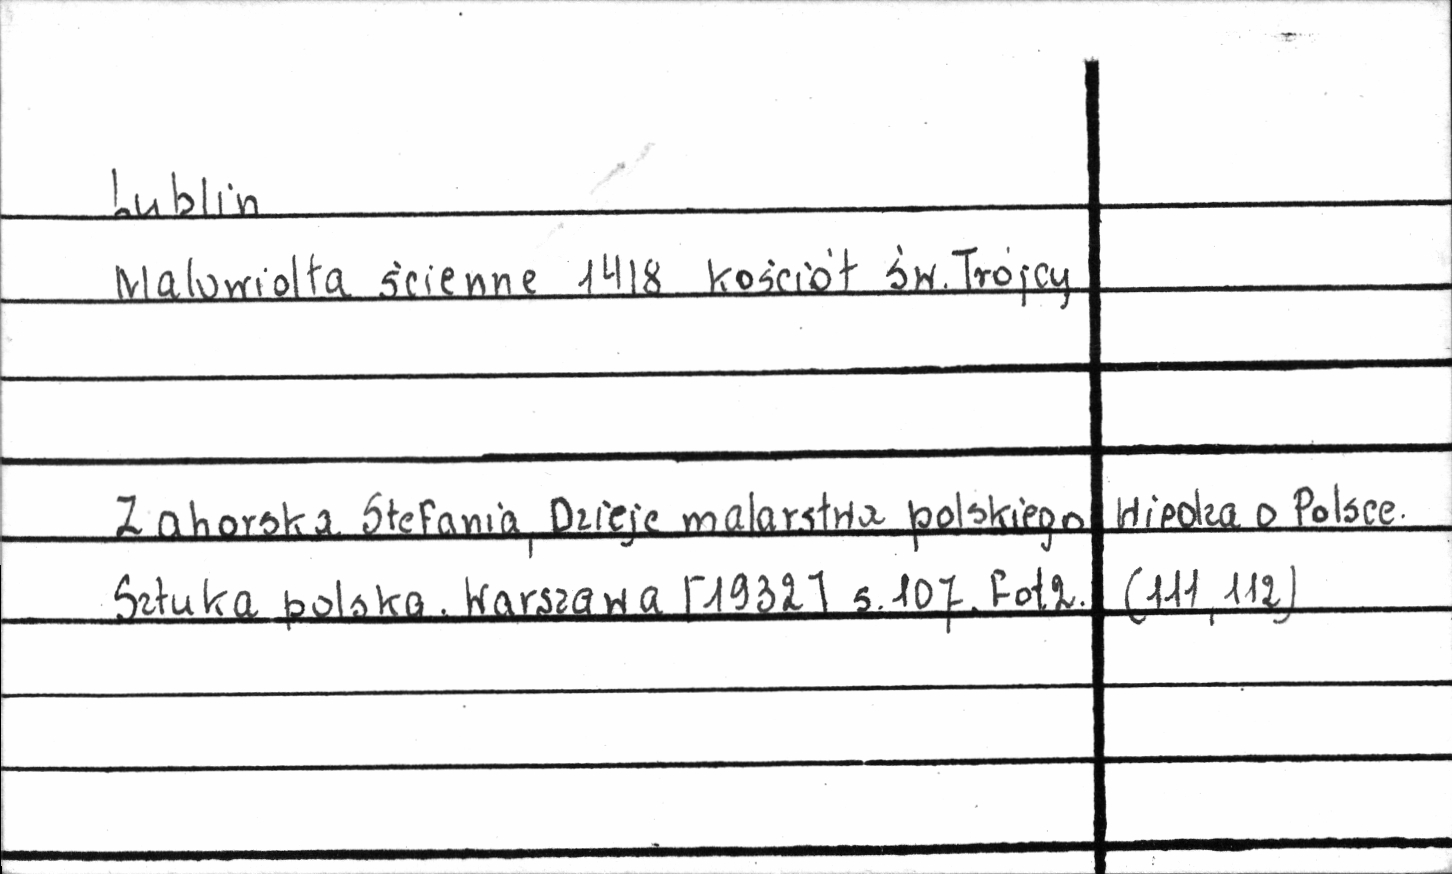 Lublin
Malowidła ścienne 1418 kościół św. Trójcy
Zahorska Stefania, Dzieje malarstwa polskiego Wiedza o Polsce.
Sztuka polska. Warszawa [1932] s. 107. Fot 2. (111, 112)